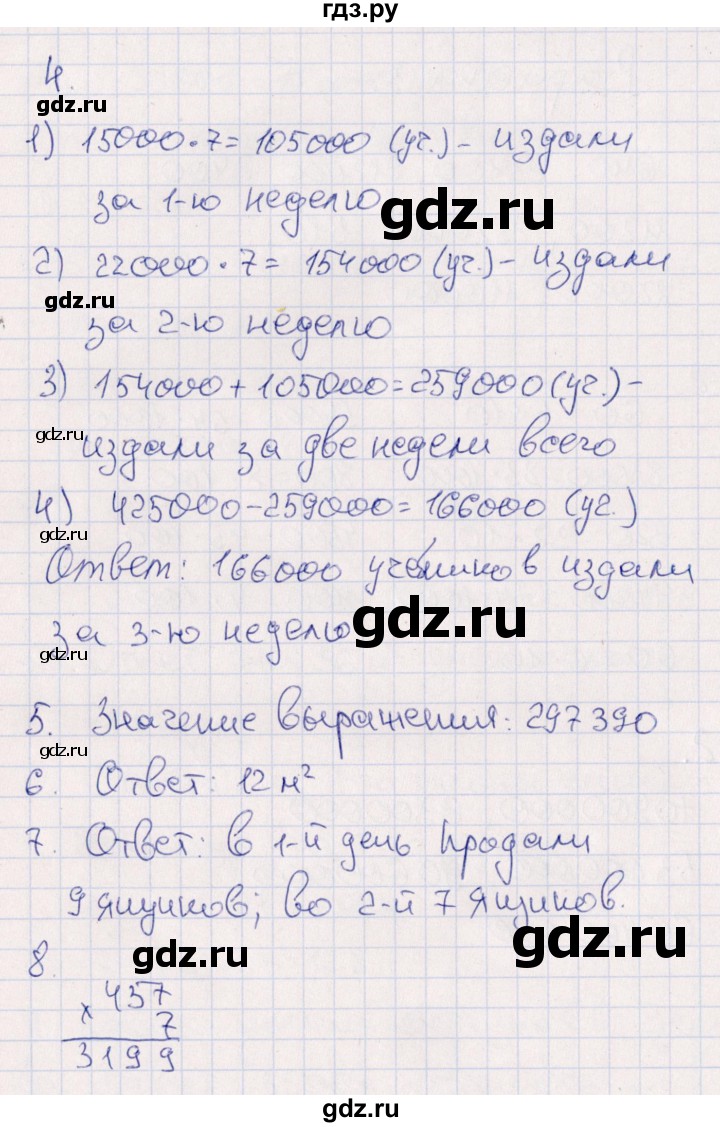 гдз.ру
4.
gdz.ru
1) 15000·7=105000 (уч.) - издали
за 1-ю неделю
gdz.ru
2) 22000·7= 154000 (уч.) - издали
gdz.ru
за 2-ю неделю
3) 154000+105000=259000 (уч.) -
gdz.ru
издали за две недели всего
4) 425000-259000=166000 (уч.)
gdz.ru
Ответ: 166000 учебников издали
gdz.ru
за 3-ю неделю
gdz.ru
5. Значение выражения: 297390
gdz.ru
6. Ответ: 12 м²
7. Ответ: в 1-й день продали
gdz.ru
9 ящиков; во 2-й 7 ящиков.
gdz.ru
8.
gdz.ru
× 457
7
3199
gdz.ru
gdz.ru